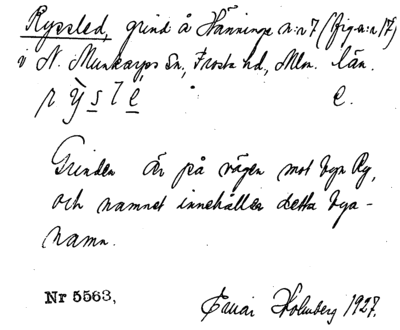 Ryssled, grind å Hänninge n:r 7 (fig.a:n 17)
i N. Munkarps Sn, Frosta hd, Mlm. län.
r ỳ s l e, e.
Grinden är på vägen mot byn Ry,
och namnet innehåller detta bya-
namn.
Nr 5563, Einar Holmberg 1927.